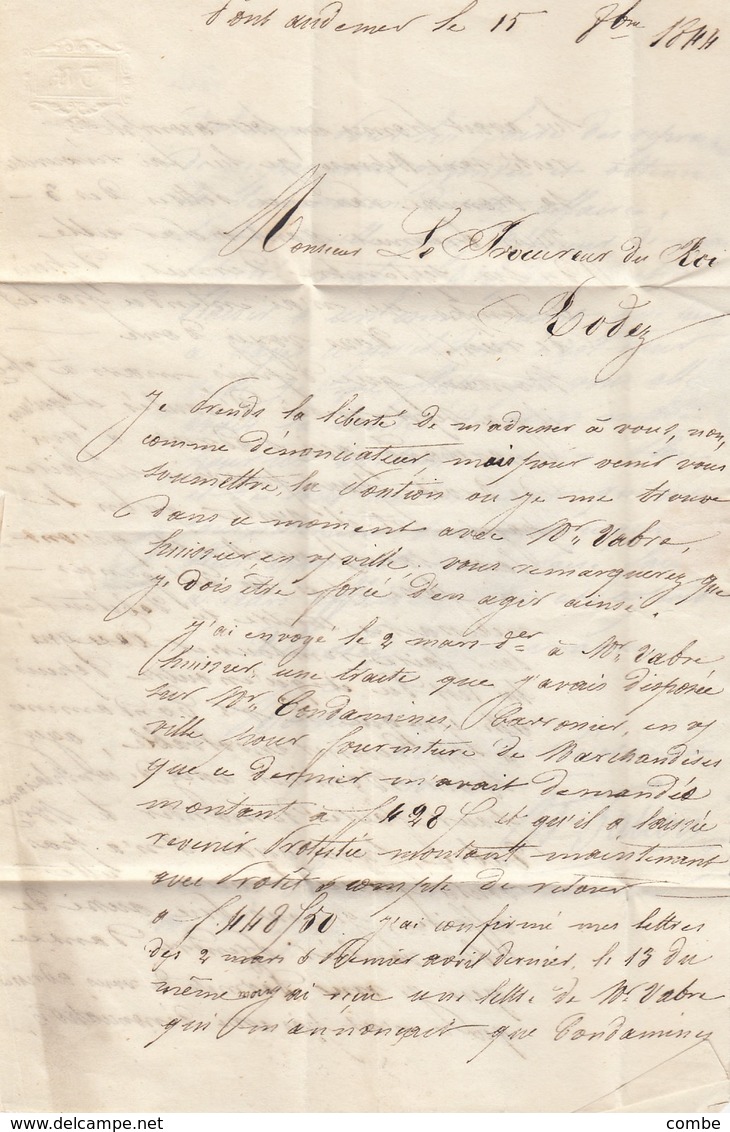 Pont audemer le 15 7bre 1844
Monsieur Le Procureur du Roi
Rodez
Je Prends la liberté de m'adresser à vous, non,
comme dénonciateur, mais pour venir vous
soumettre, la Position ou je me trouve
dans ce moment avec Mr Vabre,
huissier, en v/ ville. vous remarquerez que
je dois être forcé d'en agir ainsi.
j'ai envoyé le 2 mars der à Mr Vabre
huissier, une traite que j'avais disposée
sur Mr Condamines, Carrossier, en v/
ville pour fourniture de Marchandises
que ce dernier m'avait demandées
montant à f 428 f et qu'il a laissée
revenir Protestée montant maintenant
avec Protet & compte de retour
a f 448 f50. j'ai confirmé mes lettres
des 2 mars & Premier avril dernier, le 13 du
même j'ai reçu une lettre de Mr Vabre
qui m'annonçait que Condamines
combe